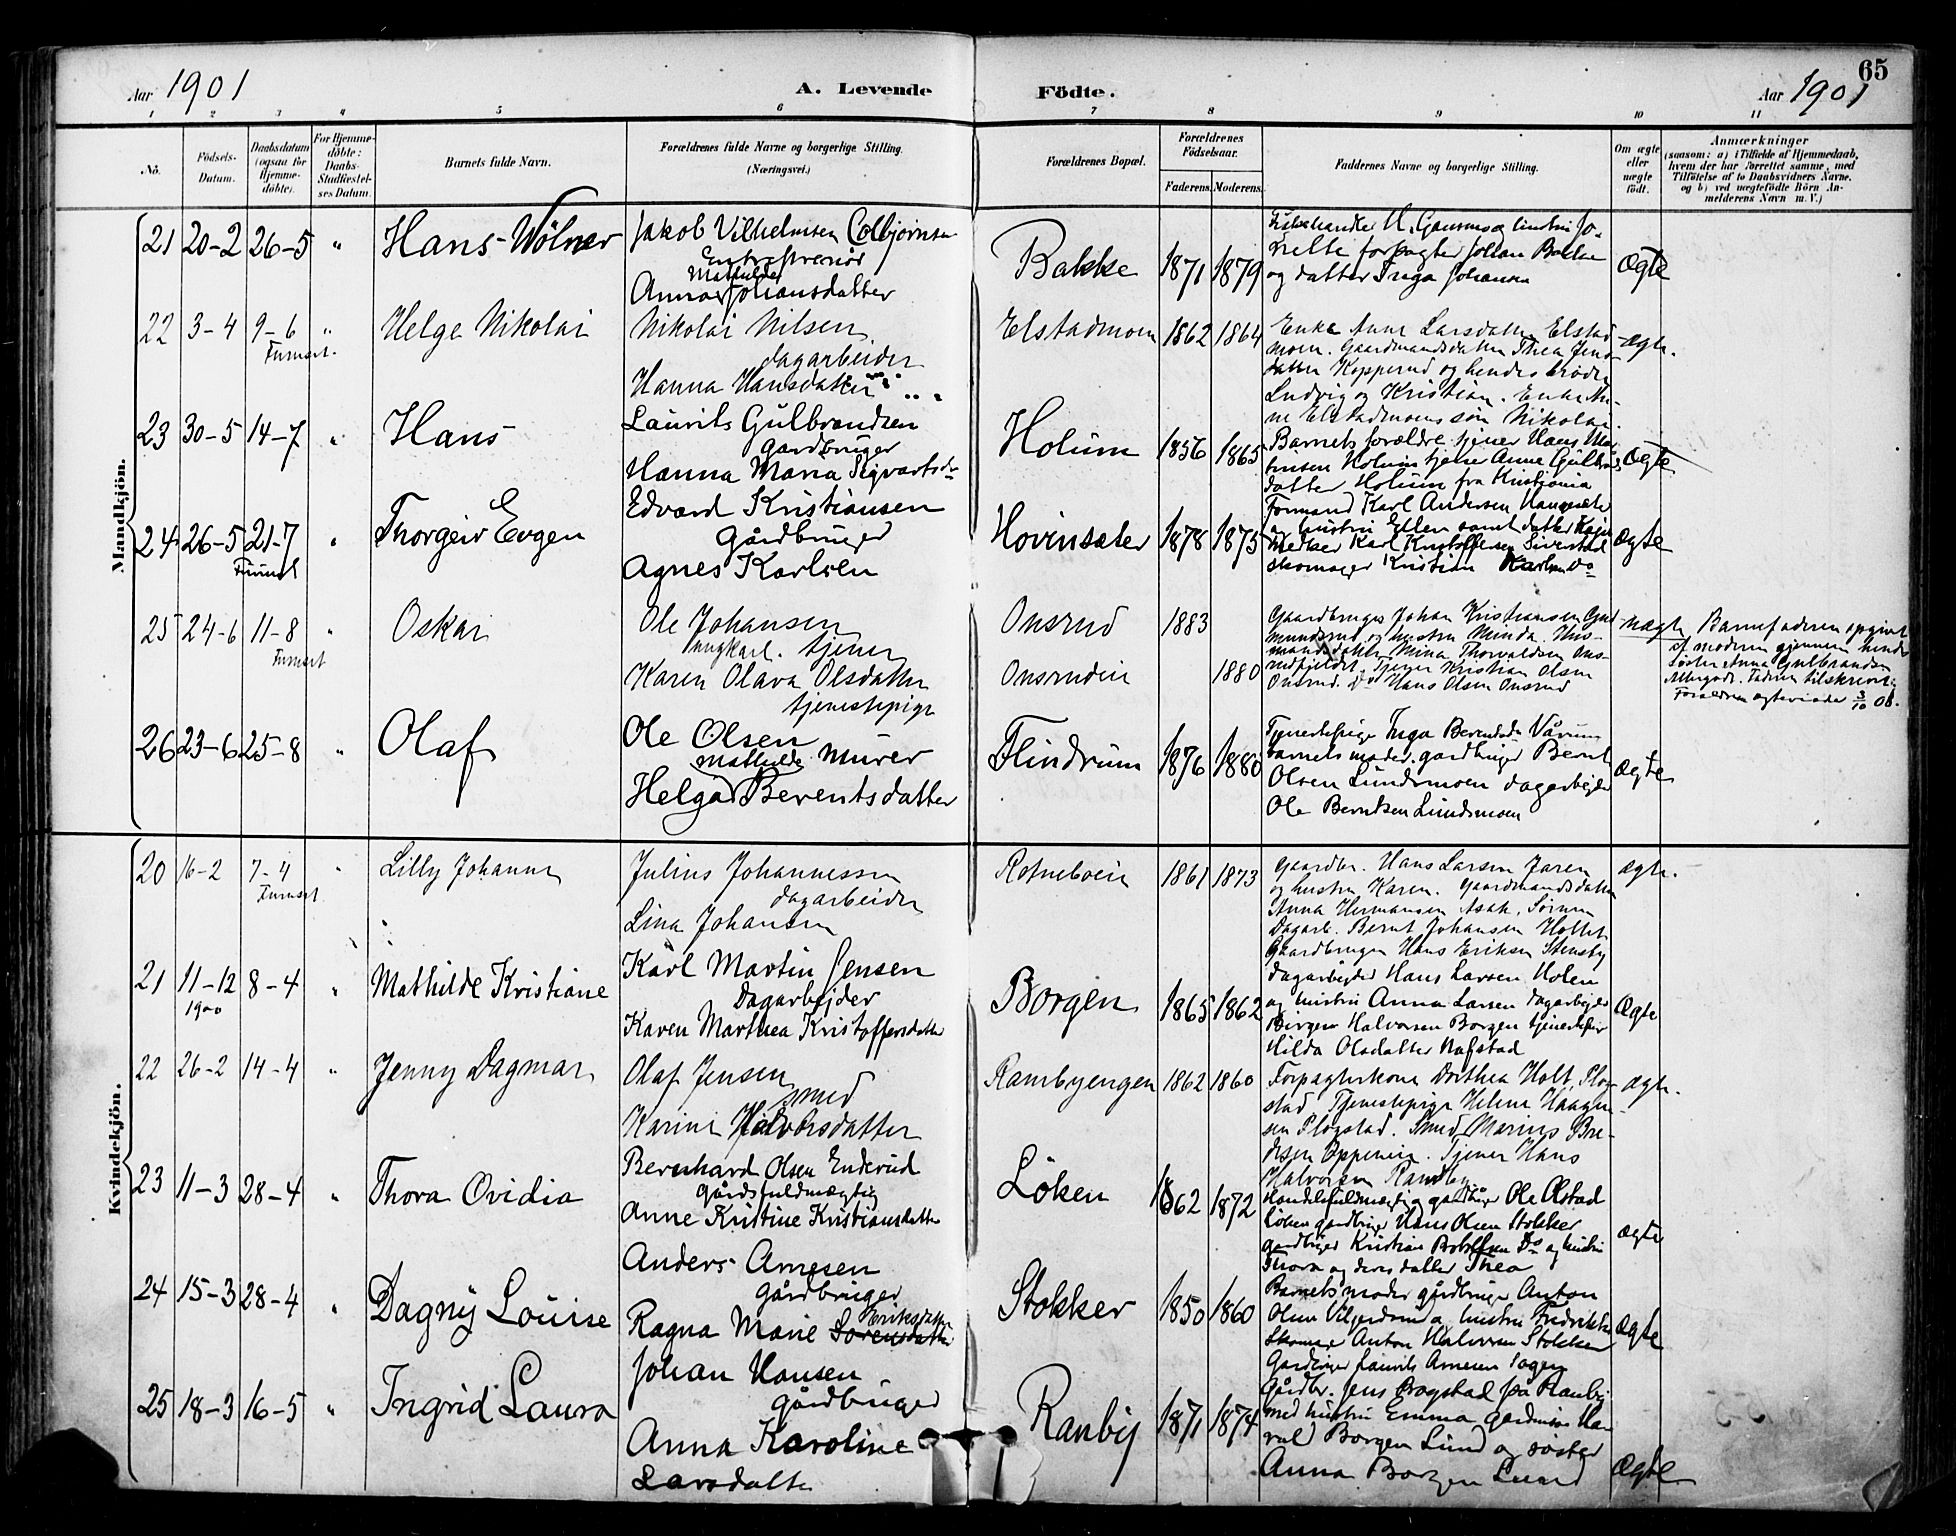 65
Aar 1901
A. Levende
Födte.
Aar 1901
1 2 3 4 5 6 7 8 9 10 11
No.
Födsels-Datum.
Daabsdatum (ogsaa for Hjemme-döbte).
For Hjemme-döbte: Daabs-Stadfæstelses Datum.
Barnets fulde Navn.
Forældrenes fulde Navne og borgerlige Stilling.
(Næringsvei.)
Forældrenes Bopæl.
Forældrenes Födselsaar.
Faderens. Moderens.
Faddernes Navne og borgerlige Stilling.
Om ægte eller uægte födt.
Anmærkninger
(saasom: a) i Tilfælde af Hjemmedaab,
hvem der har forrettet samme, med
Tilföielse af to Daabsvidners Navne.
og b) ved uægtefödte Börn An-
melderens Navn m. V.)
Mandkjön.
21 20-2 26-5 " Hans Wölner
Jakob Vilhelmsen Colbjørnsen
Entreprenör
Mathilde
Anna Johansdatter
Bakke 1871 1879
forpagter Johan Bakke
og datter Inga Johansen
ægte
22 3-4 9-6 " Helge Nikolai
Furuset.
Nikolai Nilsen
dagarbeider
Hanna Hansdatter
Elstadmoen 1862 1864
Enke Anne Larsdatter Elstad-
moen. Gaardmandsdatter Thea Jens-
datter Kopperud og hendes broder
Ludvig og Kristian. Enke An-
ne Elstadmoens søn Nikolai.
ægte.
23 30-5 14-7 " Hans
Laurits Gulbrandsen
Gårdbruger
Hanna Maria Sigvartsd.
Holum 1856 1865
Barnets forældre tjener Hans Mar-
tinsen Holum tjener Anne Gulbrands-
datter Holum fra Kristiania
ægte
24 26-5 21-7 " Thorgeir Evgen
Furuset
Edvard Kristiansen
Gårdbruger
Agnes Karlsen
Hovinsæter 1878 1875
Formand Karl Andersen
og hustru Ellen samt datter
Karl Kristoffersen
skomager Kristian Karlsen do
ægte
25 24-6 11-8 " Oskar
Furuset
Ole Johansen
ungkarl. tjener
Karen Olava Olsdatter
tjenestepige
Onsrud 1883
Onsrudeie 1880
Gaardbruger Johan Kristiansen Gud-
mundsrud og hustru Minda. Hus-
mandsdatter Mina Thorvaldsen Ons-
rudfjeldet. Tjener Kristian Olsen
Onsrud. Do Hans Olsen Onsrud
uægte
Barnefaderen opgivet
af moderen gjennem hendes
søster Anna Gulbrandsen
Faderen tilskrevet.
Forældrene ægteviede 3/10 08.
26 23-6 25-8 " Olaf
Ole Olsen
Murer
Mathilde
Helga Berentsdatter
Flindrum 1876 1880
Tjenestepige Inga Berendsdr Vårum
barnets moder. gardbruger Bernt
Olsen Lundsmoen dagarbejder
Ole Berndtsen Lundsmoen
ægte
Kvindekjön.
20 16-2 7-4 " Lilly Johanne
Furuset
Julius Johannessen
dagarbeider
Lina Johansen
Rotneboein 1861 1873
Gaardbr. Hans Larsen Jaren
og hustru Karen. Gaardmandsdatter
Anna Hermansen Asak, Sørum
Dagarb. Bernt Johansen Holtet
Gaardbruger Hans Eriksen Stensby
ægte.
21 11-12 8-4 " Mathilde Kristiane
1900
Karl Martin Jensen
Dagarbejder
Karen Marthea Kristoffersdatter
Borgen 1865 1862
Dagarbejder Hans Larsen Holen
og hustru Anna Larsen dagarbejder
Birger Halvorsen Borgen tjenestepige
Hilda Olsdatter Nafstad
Ægte
22 26-2 14-4 " Jenny Dagmar
Olaf Jensen
smed
Karine Halvorsdatter
Rambyengen 1862 1860
Forpagterkone Dorthea Holt, Plog-
stad, Tjenestepige Helene Haagen-
sen Plogstad. Smed Marius Bre-
desen Oppeneie. Tjener Hans
Halvorsen Ramby
ægte.
23 11-3 28-4 " Thora Ovidia
Bernhard Olsen Enderud
Gårdsfuldmægtig
Anne Kristine Kristiansdatter
Löken 1862 1872
Handelsfuldmægtig gardbruger Ole Olstad
Løken gardbruger Hans Olsen Stokker
gardbruger Kristian Do og hustru
Thora og deres datter Thea
ægte
24 15-3 28-4 " Dagny Louise
Anders Arnesen
Gårdbruger
Eriksdatter
Ragna Marie Sørensdatter
Stokker 1850 1860
Barnets moder gårdbruger Anton
Olsen Vilgerdsrud og hustru Fredrikke
Skomager Anton Halvorsen Stokker
Gardbruger Laurits Arnesen
ægte
25 18-3 16-5 " Ingrid Laura
Johan Hansen
Gårdbruger
Anna Karoline
Larsdatter
Ranby 1871 1874
Gårdbr. Jens Bogstad på Ranby
med hustru Emma
Borgen Lund og søster
Anna Borgen Lund
Ægte